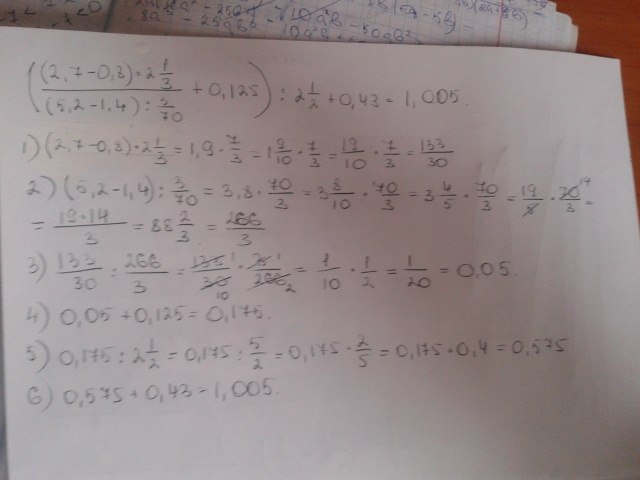 8a³ - 25ab²
10a²b
((2,7-0,8)·2 1/3 / (5,2-1,4):3/70 + 0,125) : 2 1/2 + 0,43 = 1,005.
1) (2,7-0,8)·2 1/3 = 1,9 · 7/3 = 1 9/10 · 7/3 = 19/10 · 7/3 = 133/30
2) (5,2-1,4) : 3/70 = 3,8 · 70/3 = 3 8/10 · 70/3 = 3 4/5 · 70/3 = 19/5 · 70/3 14 =
= 19·14/3 = 88 2/3 = 266/3
3) 133/30 : 266/3 = 133 1/30 10 · 3 1/266 2 = 1/10 · 1/2 = 1/20 = 0,05.
4) 0,05 + 0,125 = 0,175.
5) 0,175 : 2 1/2 = 0,175 : 5/2 = 0,175 · 2/5 = 0,175 · 0,4 = 0,575
6) 0,575 + 0,43 = 1,005.